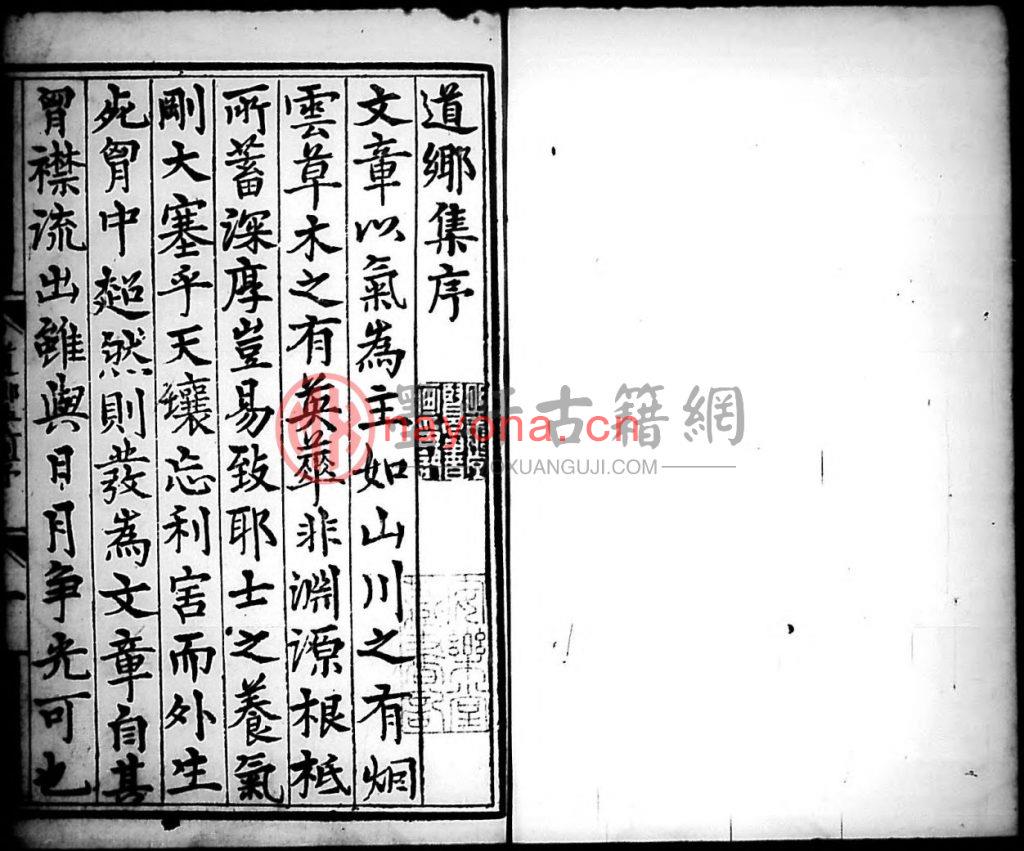 道鄉集序
文章以氣為主如山川之有烟
雲草木之有英華非淵源根柢
所蓄深厚豈易致耶士之養氣
剛大塞乎天壤忘利害而外生
死胷中超然則發為文章自其
胷襟流出雖與日月爭光可也
古籍網
nayona.cn
OXUANGUJI.COM